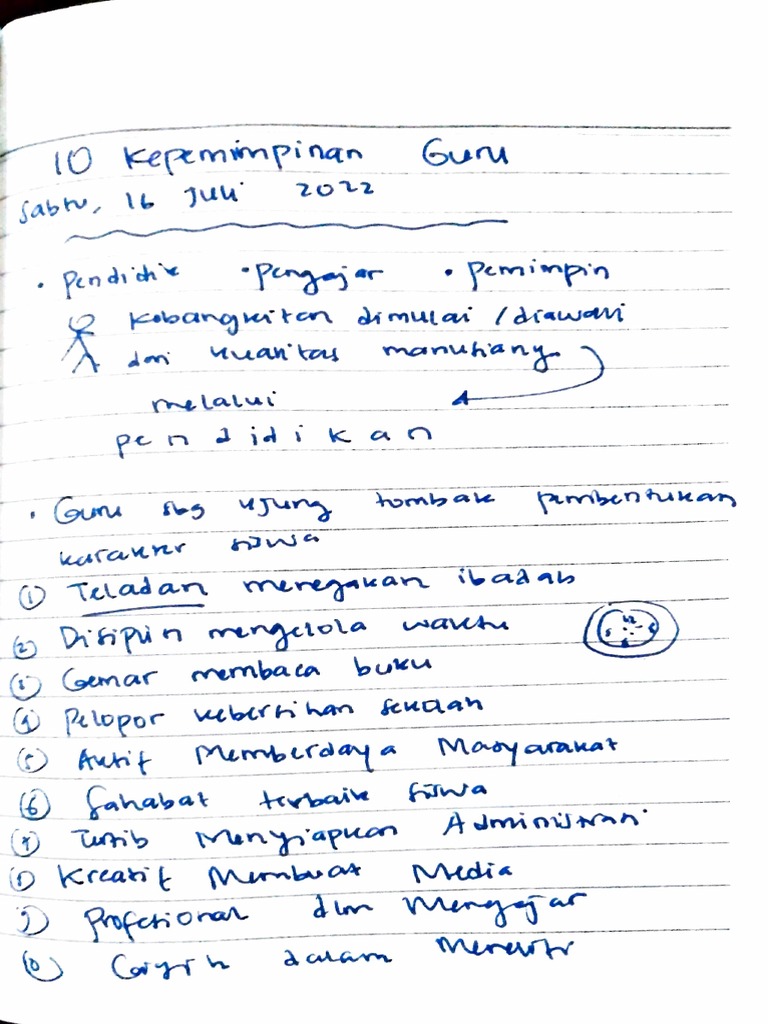 10 Kepemimpinan Guru
Sabtu, 16 Juli 2022
• Pendidik • Pengajar • Pemimpin
Kebangkitan dimulai / diawali
dari kualitas manusiany.
melalui
pendidikan
• Guru sbg ujung tombak pembentukan
karakter siswa
① Teladan menegakan ibadah
② Disiplin mengelola waktu
③ Gemar membaca buku
④ Pelopor kebersihan sekolah
⑤ Aktif Memberdaya Masyarakat
⑥ Sahabat terbaik siswa
⑦ Tertib Menyiapkan Administrasi
⑧ Kreatif Membuat Media
⑨ Profesional dlm Mengajar
⑩ dalam